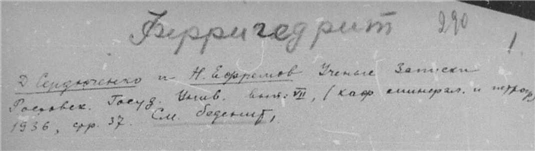 Ферригедрит 290
1
Д. Сердюченко и Н. Ефремов Ученые Записки
Ростовск. Госуд. Унив. вып. VII, (каф. минерал. и петрогр)
1936, стр. 37. См. беденит,